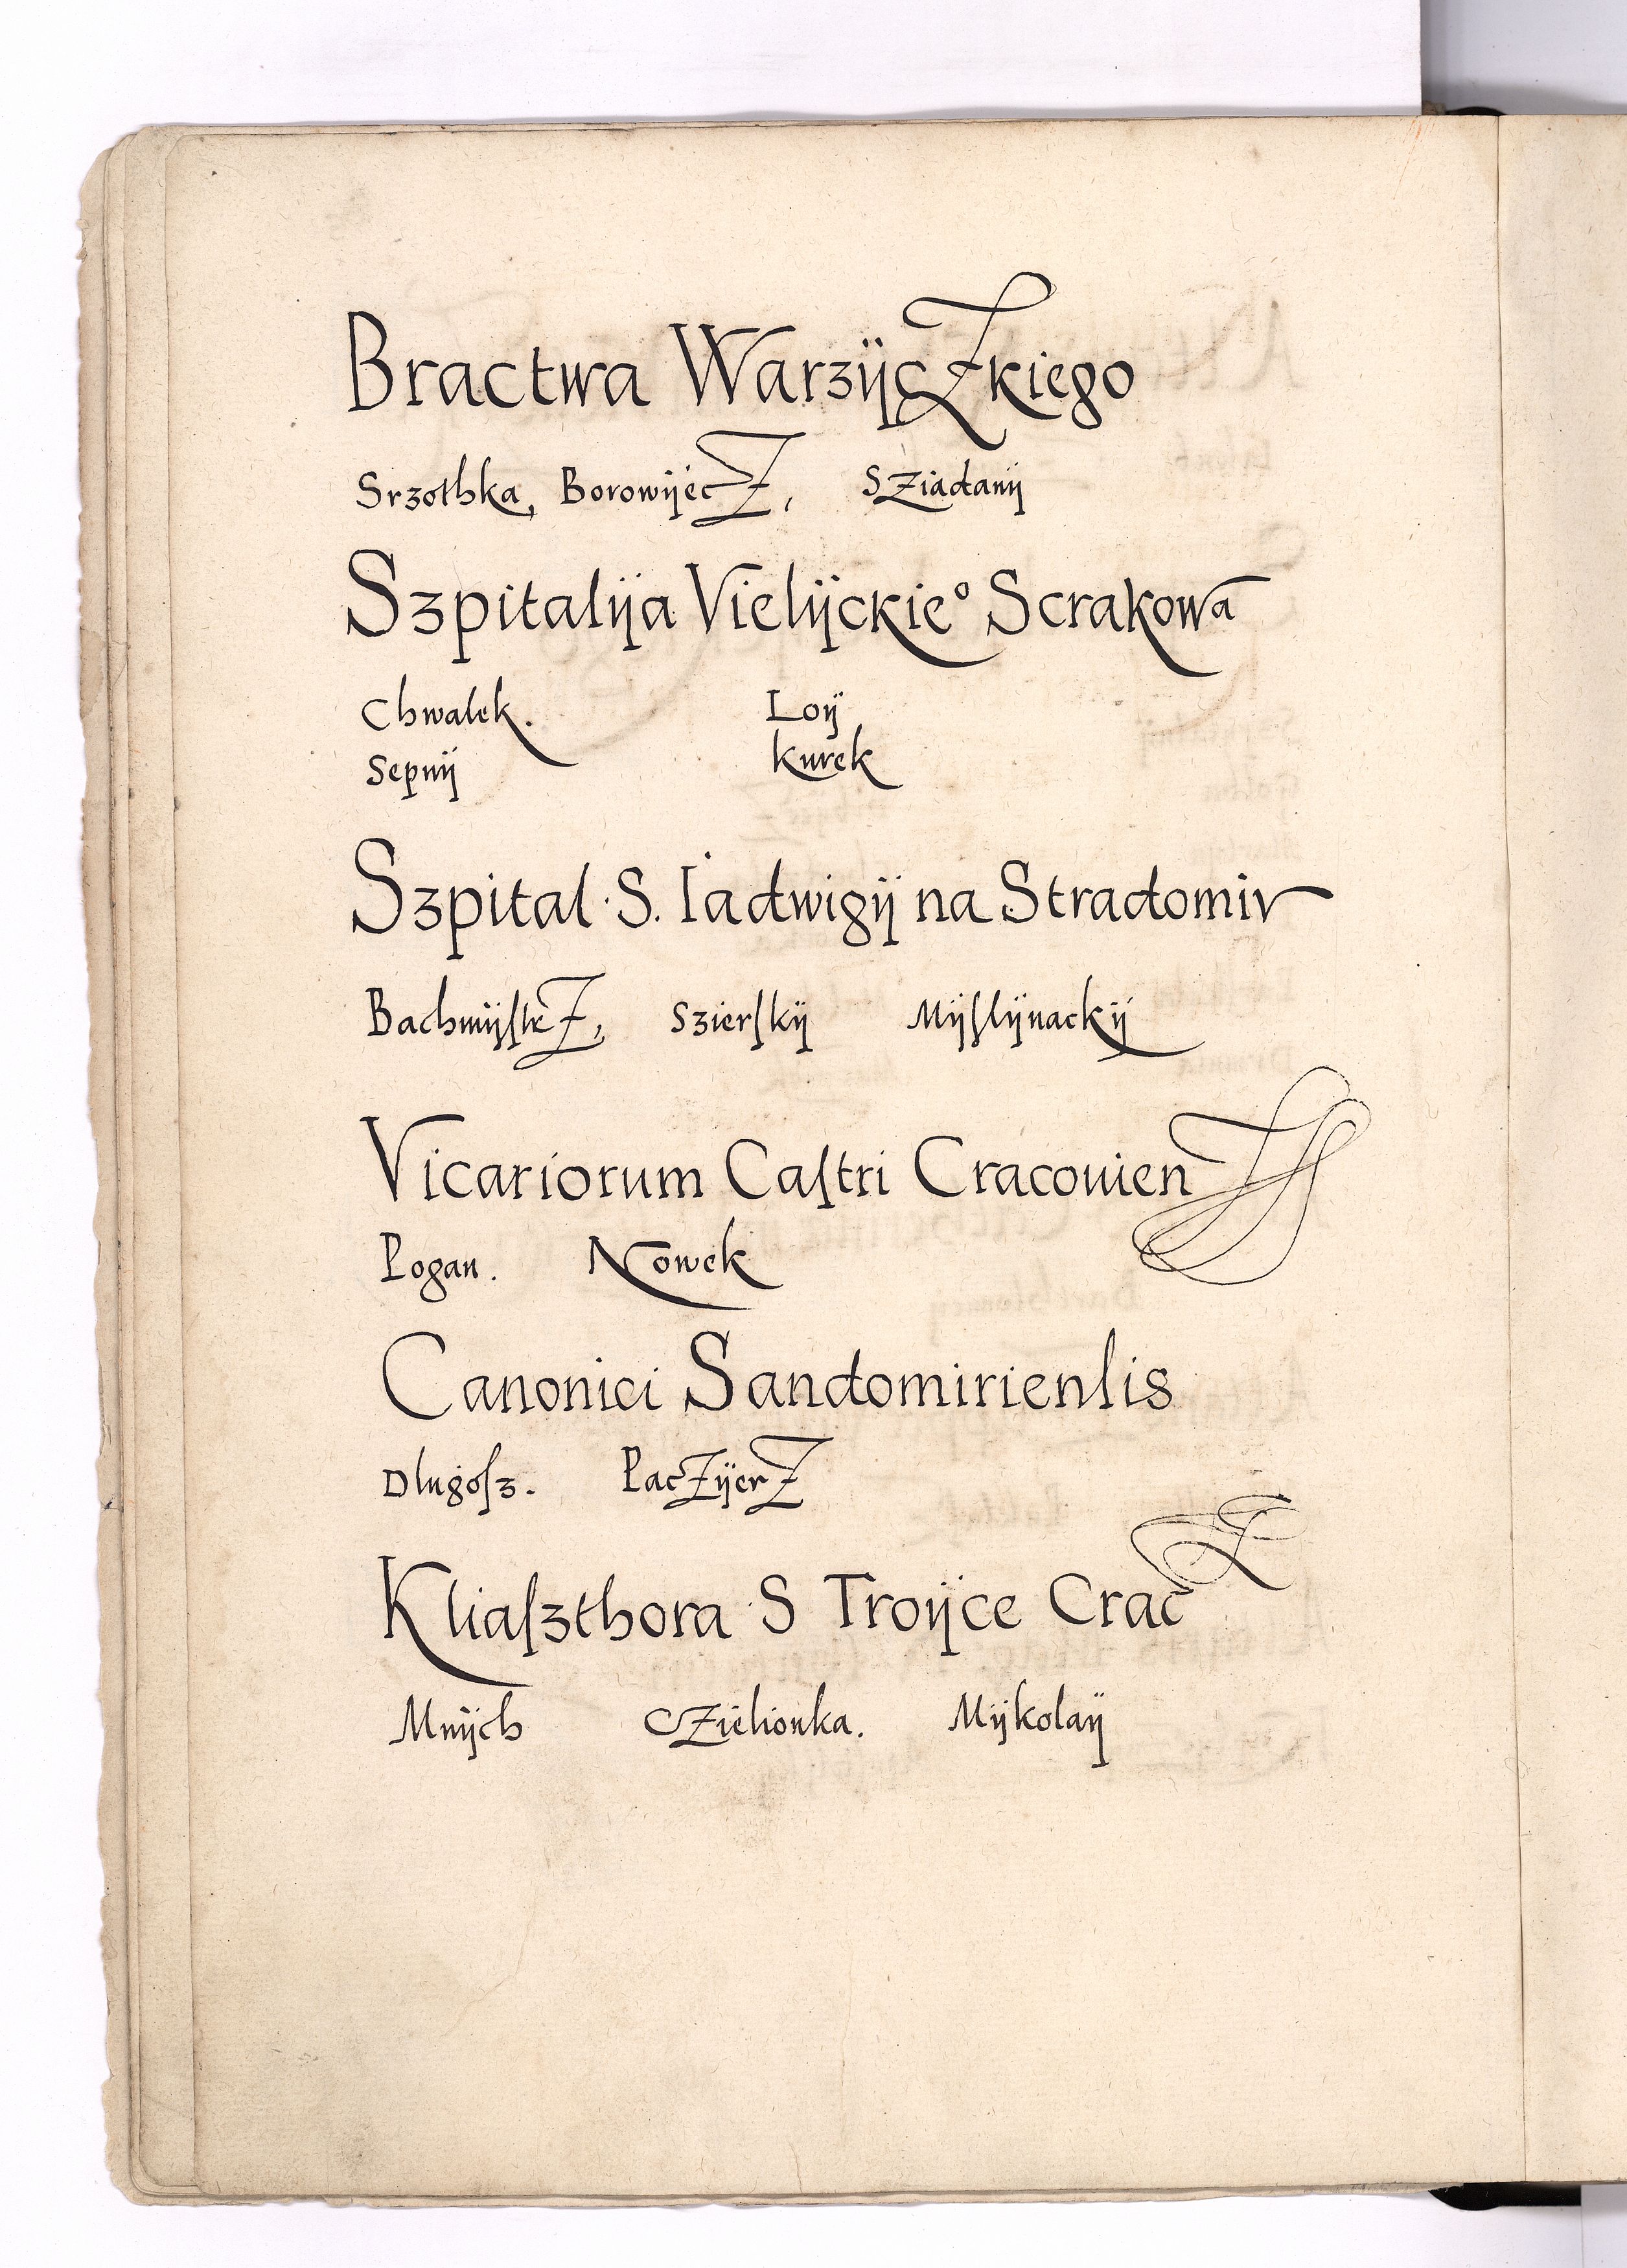 Bractwa Warzÿczkiego
Srzothka, Borowÿecz, Sziadnÿ
Szpitalÿa Vielÿckie° Scrakowa
Chwalek. Loÿ
Sepnÿ Kurek
Szpital S. Iadwigÿ na Stradomiv
Bachmÿſtrz, Szierſkÿ Mÿſlÿnackÿ
Vicariorum Caſtri Cracouien
Pogan. Nowek
Canonici Sandomirienſis
Dlugoſz. Paczÿerz
Kliaſzthora S Troÿce Crac
Mnÿch Czielionka. Mÿkolaÿ